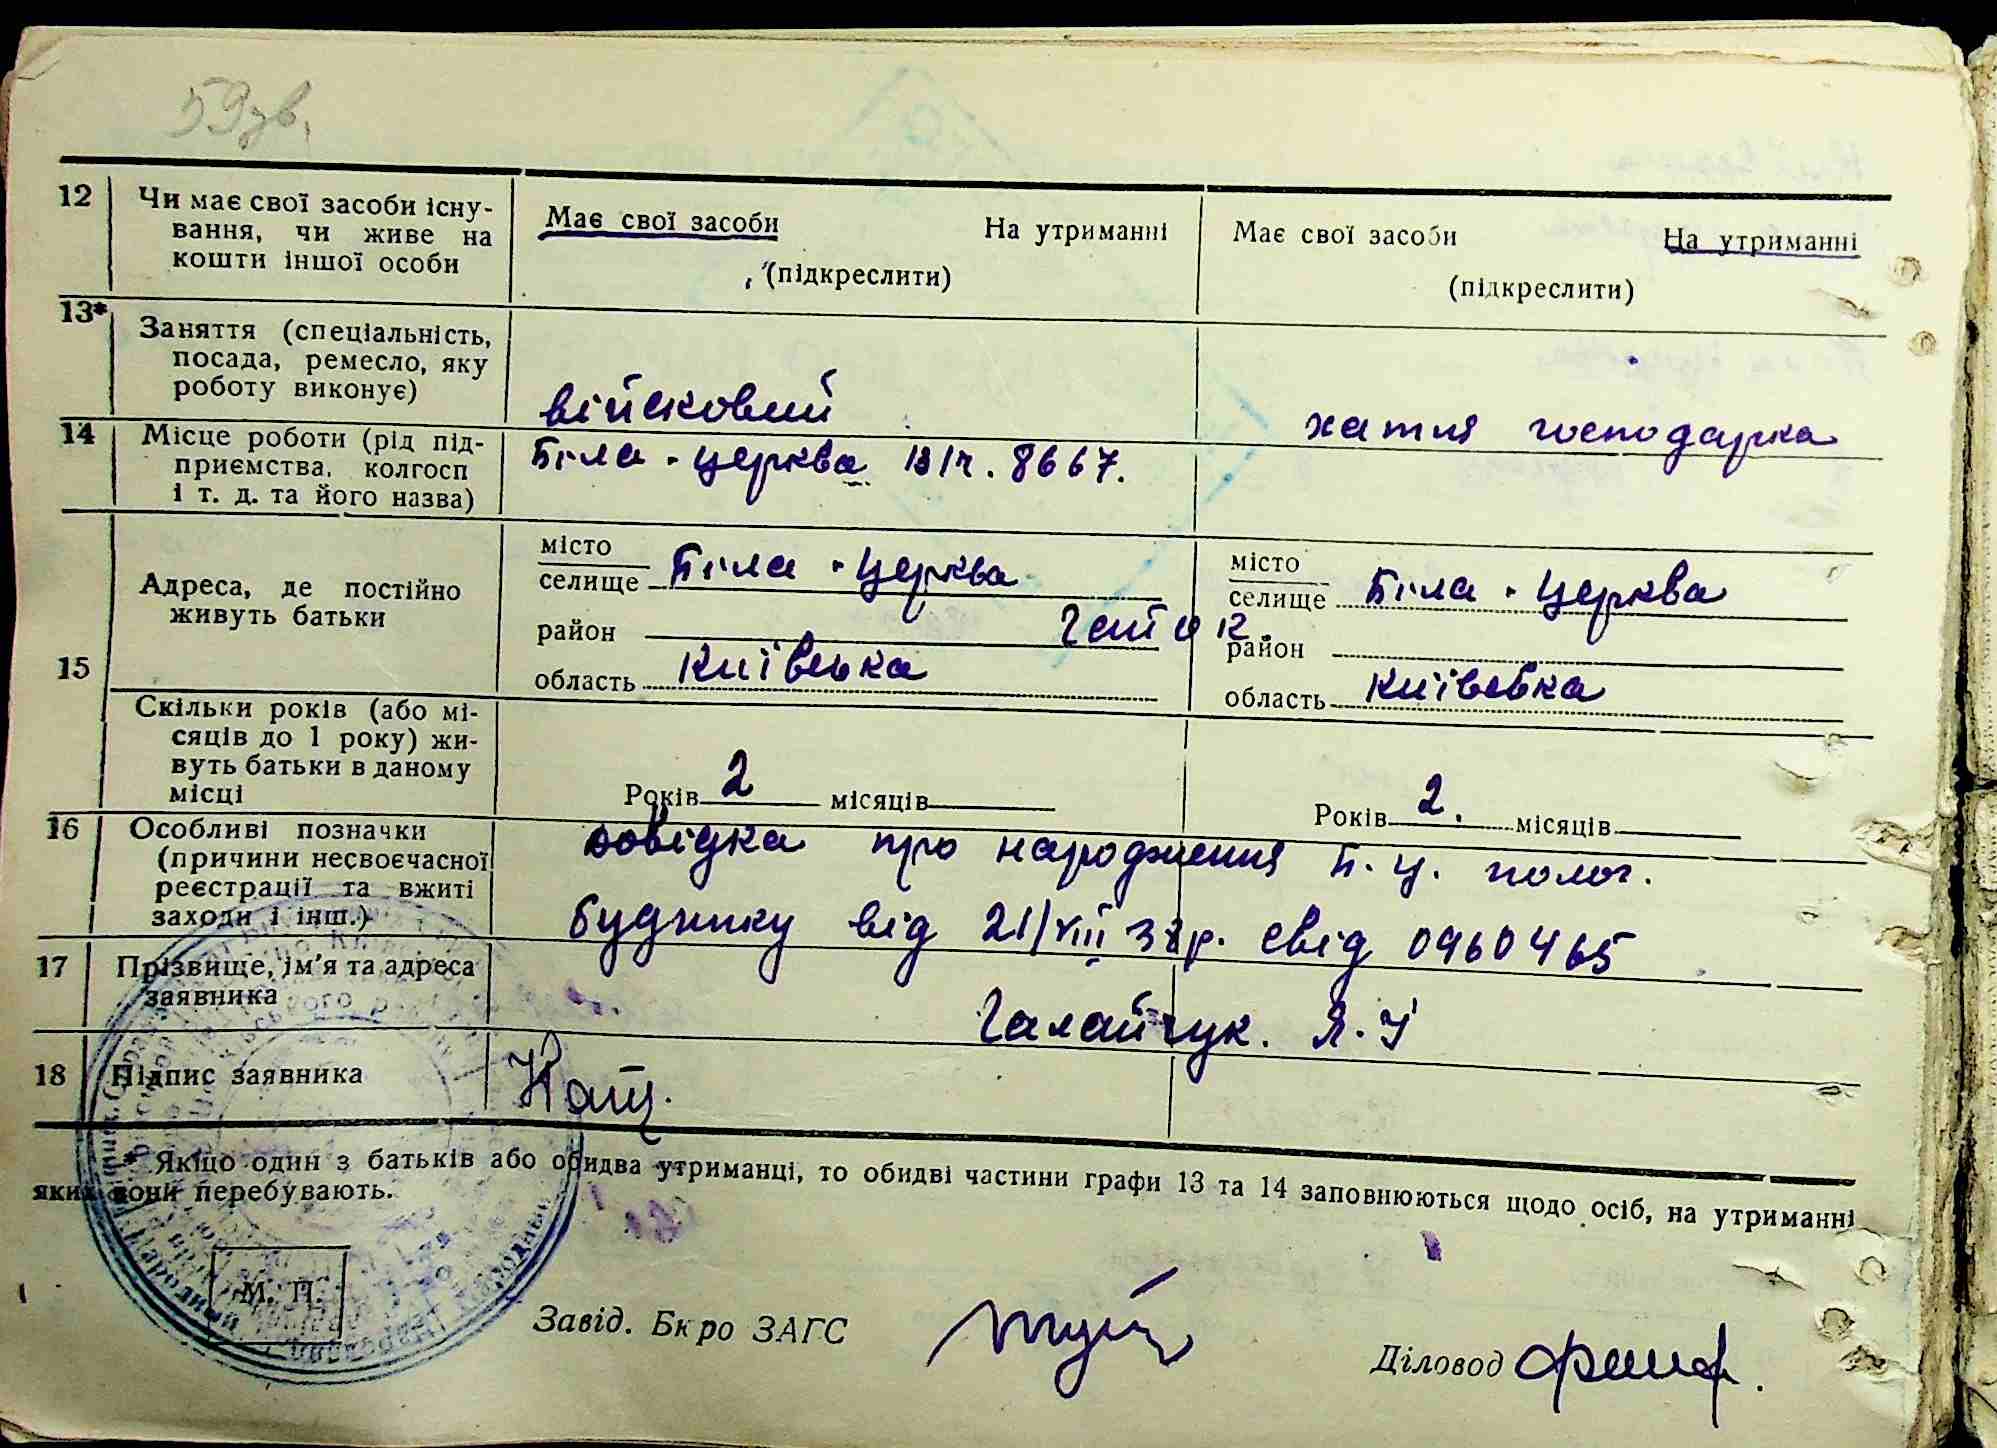 59зв.
12 Чи має свої засоби існу-
вання, чи живе на
кошти іншої особи
Має свої засоби На утриманні
(підкреслити)
Має свої засоби На утриманні
(підкреслити)
13* Заняття (спеціальність,
посада, ремесло, яку
роботу виконує)
військовий
хатня господарка
14 Місце роботи (рід під-
приємства, колгосп
і т. д. та його назва)
Біла-церква в/ч. 8667.
15 Адреса, де постійно
живуть батьки
місто
селище Біла-Церква
район Гайок.
область Київська
місто
селище Біла-Церква
район
область Київська
Скільки років (або мі-
сяців до 1 року) жи-
вуть батьки в даному
місці
Років 2 місяців
Років 2. місяців
16 Особливі позначки
(причини несвоєчасної
реєстрації та вжиті
заходи і інш.)
довідка про народження Б. Ц. полог.
будинку від 21/VIII 38р. свід 0960465
17 Прізвище, ім'я та адреса
заявника
Галайчук. Я. У
18 Підпис заявника
* Якщо один з батьків або обидва утриманці, то обидві частини графи 13 та 14 заповнюються щодо осіб, на утриманні
яких вони перебувають.
М. П.
Завід. Бюро ЗАГС
Діловод